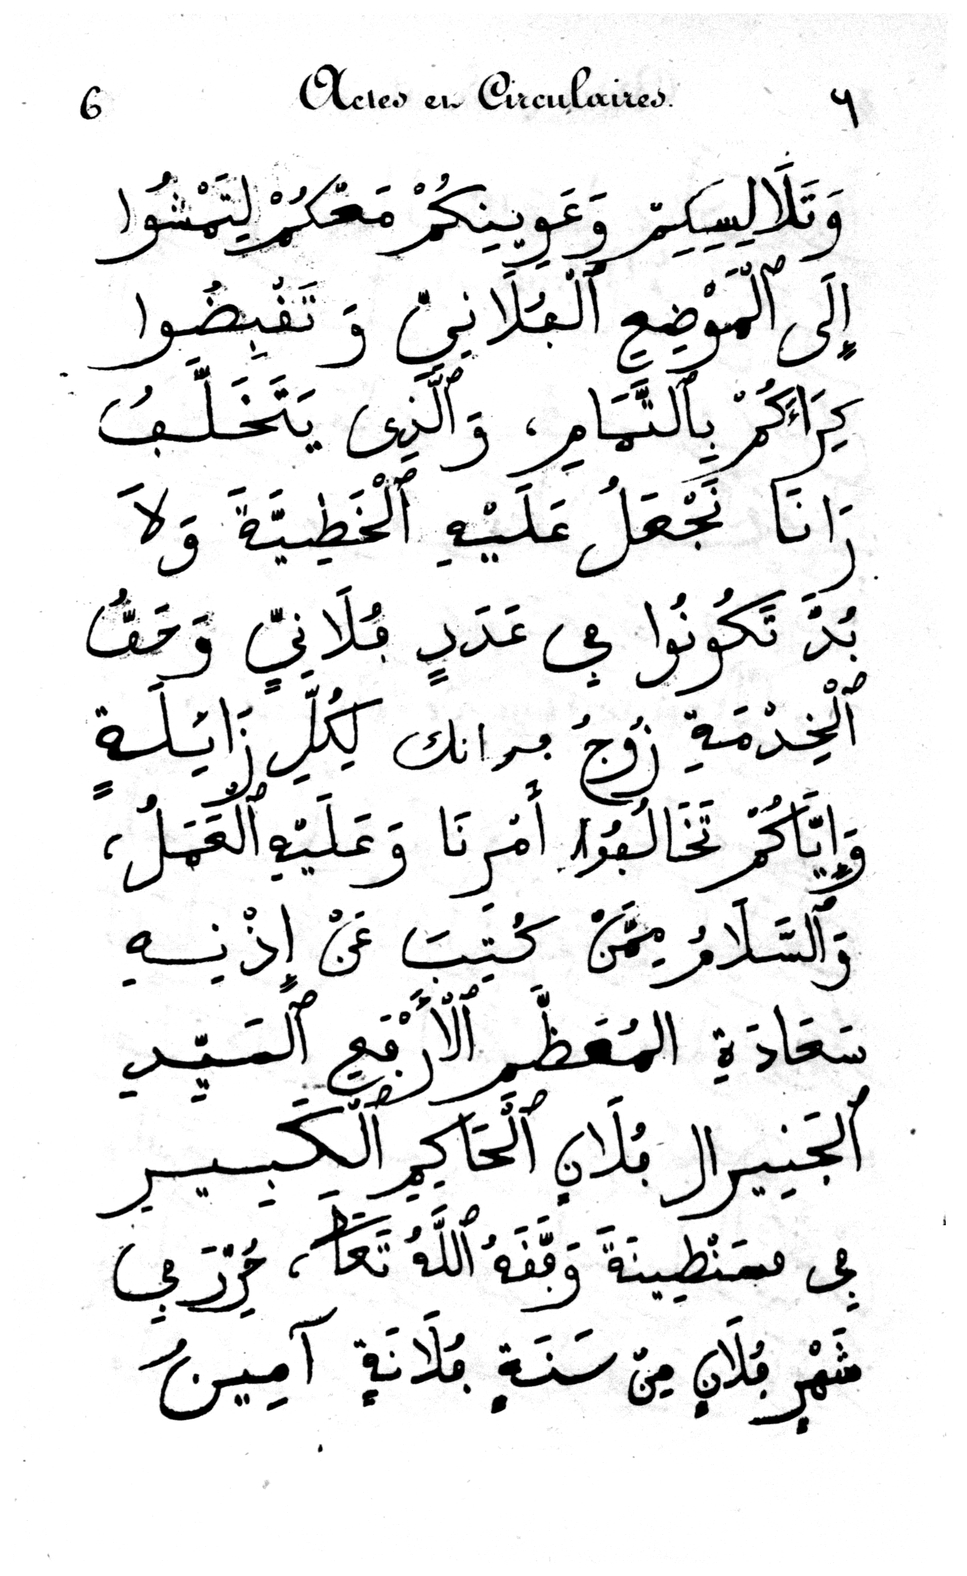 6 Actes en Circulaires. ٦
وَتَلَالِيسِكِمْ وَعَوِينِكُمْ مَعْكُمْ لِتَمْشُوا
إِلَى ٱلْمَوْضِعِ ٱلْڢُلَانِيِّ وَتَفْبِضُوا
كِرَاءَكُمْ بِٱلتَّمَامِ، وَٱلَّذِى يَتَخَلَّڢُ
رَانَا نَجْعَلُ عَلَيْهِ ٱلْخَطِيَّةَ وَلَا
بُدَّ تَكُونُوا ڢِى عَدَدٍ ڢُلَانِيٍّ وَحَقُّ
ٱلْخِدْمَةِ زُوجُ ڢرانك لِكُلِّ زَايْلَةٍ
وَإِيَّاكُمْ تَخَالُڢُوا أَمْرنَا وَعَلَيْهِ ٱلْعَمَلُ،
وَٱلسَّلَامُ مِمَّنْ كُتِبَ عَنْ إِذْنِهِ
سَعَادَةِ المُعَظَّمِ ٱلْأَرْڢَعِ ٱلسَيِّدِ
ٱلجَنِيرال ڢُلَانٍ ٱلْحَاكِمِ ٱلْكَبِيرِ
ڢِى فسَنْطِينَةَ وَفَّفَهُ ٱللَّهُ تَعَالَى، حُرِّرَ ڢِى
شَهْرِ ڢُلَانٍ مِنْ سَنَةٍ ڢُلَانَةٍ آمِينْ